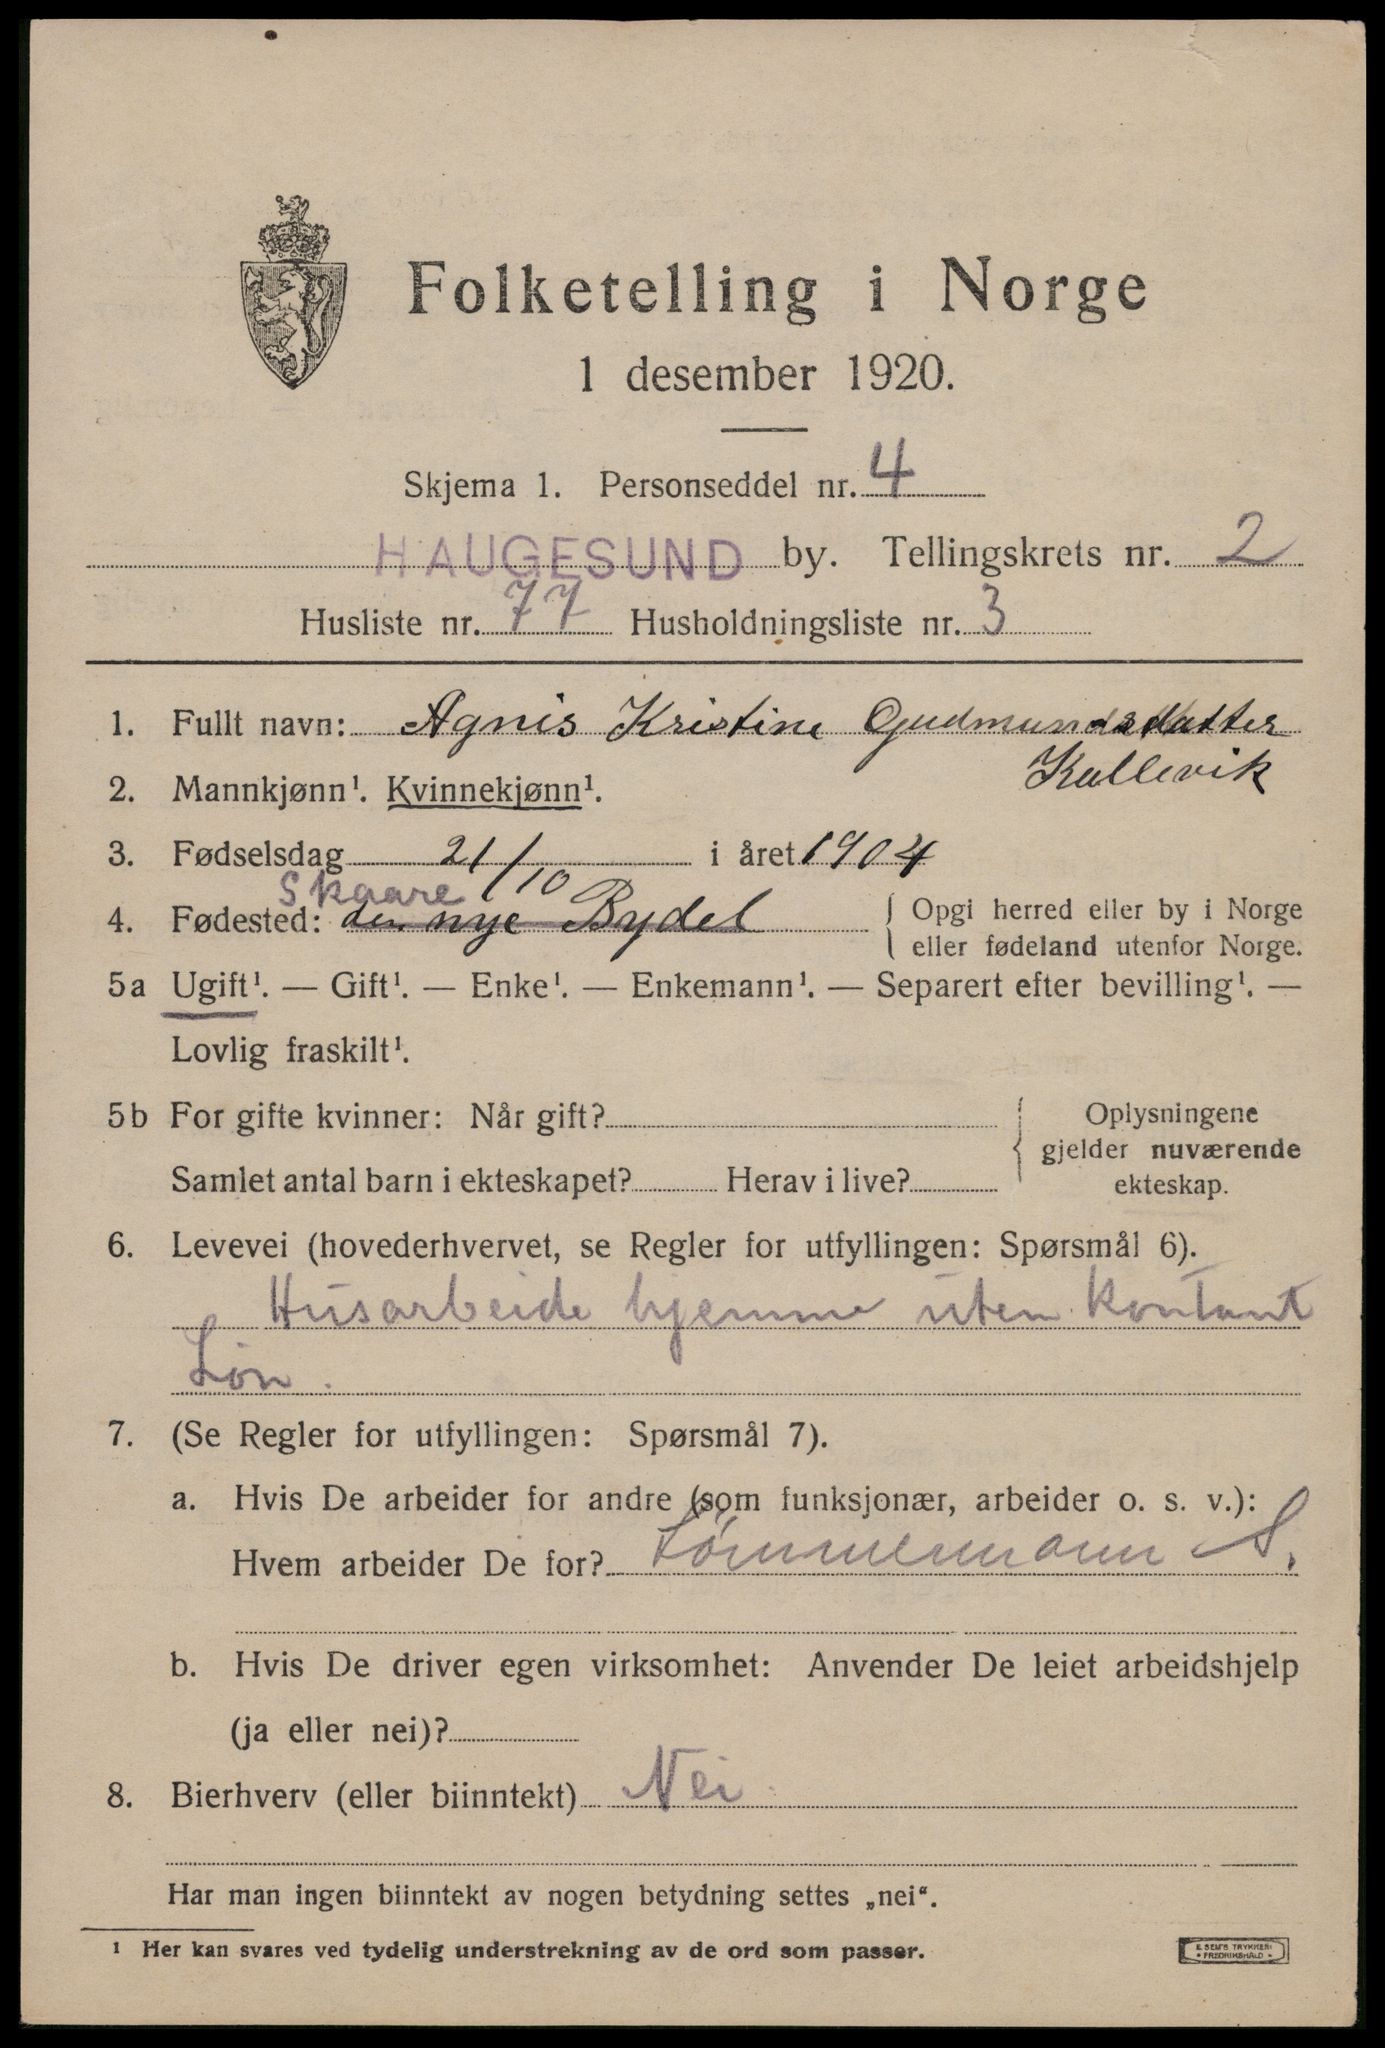 Folketelling i Norge
1 desember 1920.
Skjema 1. Personseddel nr. 4
HAUGESUND by. Tellingskrets nr. 2
Husliste nr. 77 Husholdningsliste nr. 3
1. Fullt navn: Agnis Kristine Gudmundsdatter
Kallevik
2. Mannkjønn¹. Kvinnekjønn¹.
3. Fødselsdag 21/10 i året 1904
Skaare
4. Fødested: den nye Bydel { Opgi herred eller by i Norge
eller fødeland utenfor Norge.
5a Ugift¹. — Gift¹. — Enke¹. — Enkemann¹. — Separert efter bevilling¹. —
Lovlig fraskilt¹.
5b For gifte kvinner: Når gift?
Samlet antal barn i ekteskapet? Herav i live?
Oplysningene
gjelder nuværende
ekteskap.
6. Levevei (hovederhvervet, se Regler for utfyllingen: Spørsmål 6).
Husarbeide hjemme uten kontant
Løn.
7. (Se Regler for utfyllingen: Spørsmål 7).
a. Hvis De arbeider for andre (som funksjonær, arbeider o. s. v.):
Hvem arbeider De for? S.
b. Hvis De driver egen virksomhet: Anvender De leiet arbeidshjelp
(ja eller nei)?
8. Bierhverv (eller biinntekt) Nei.
Har man ingen biinntekt av nogen betydning settes „nei“.
¹ Her kan svares ved tydelig understrekning av de ord som passer.
E. SEM'S TRYKKERI
• FREDRIKSHALD •